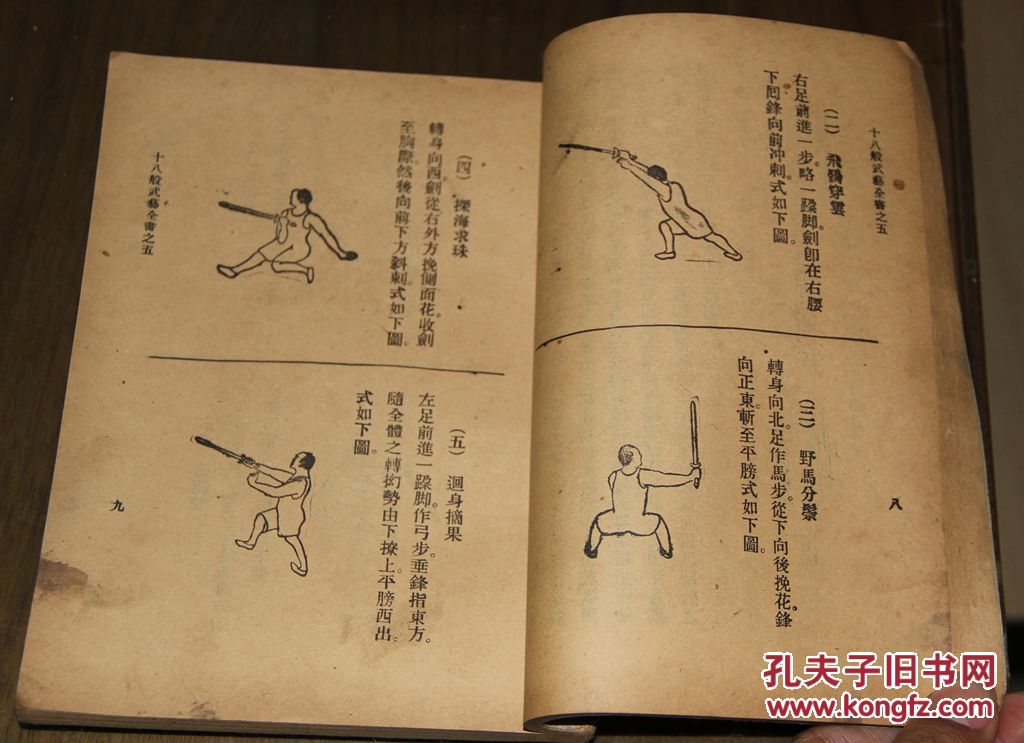 十八般武藝全書之五
(二) 飛鴉穿雲
右足前進一步。略一蹂脚。劍卽在右腰
下囘鋒向前冲刺。式如下圖。
(三) 野馬分鬃
轉身向北。足作馬步。從下向後挽花。鋒
向正東。斬至平膀。式如下圖。
八
(四) 探海求珠
轉身向西。劍從右外方挽側面花。收劍
至胸際。然後向前下方斜刺。式如下圖。
(五) 迴身摘果
左足前進一蹂脚。作弓步。垂鋒指東方。
隨全體之轉拗勢。由下撩上。平膀西出。
式如下圖。
十八般武藝全書之五
九
孔夫子旧书网
www.kongfz.com